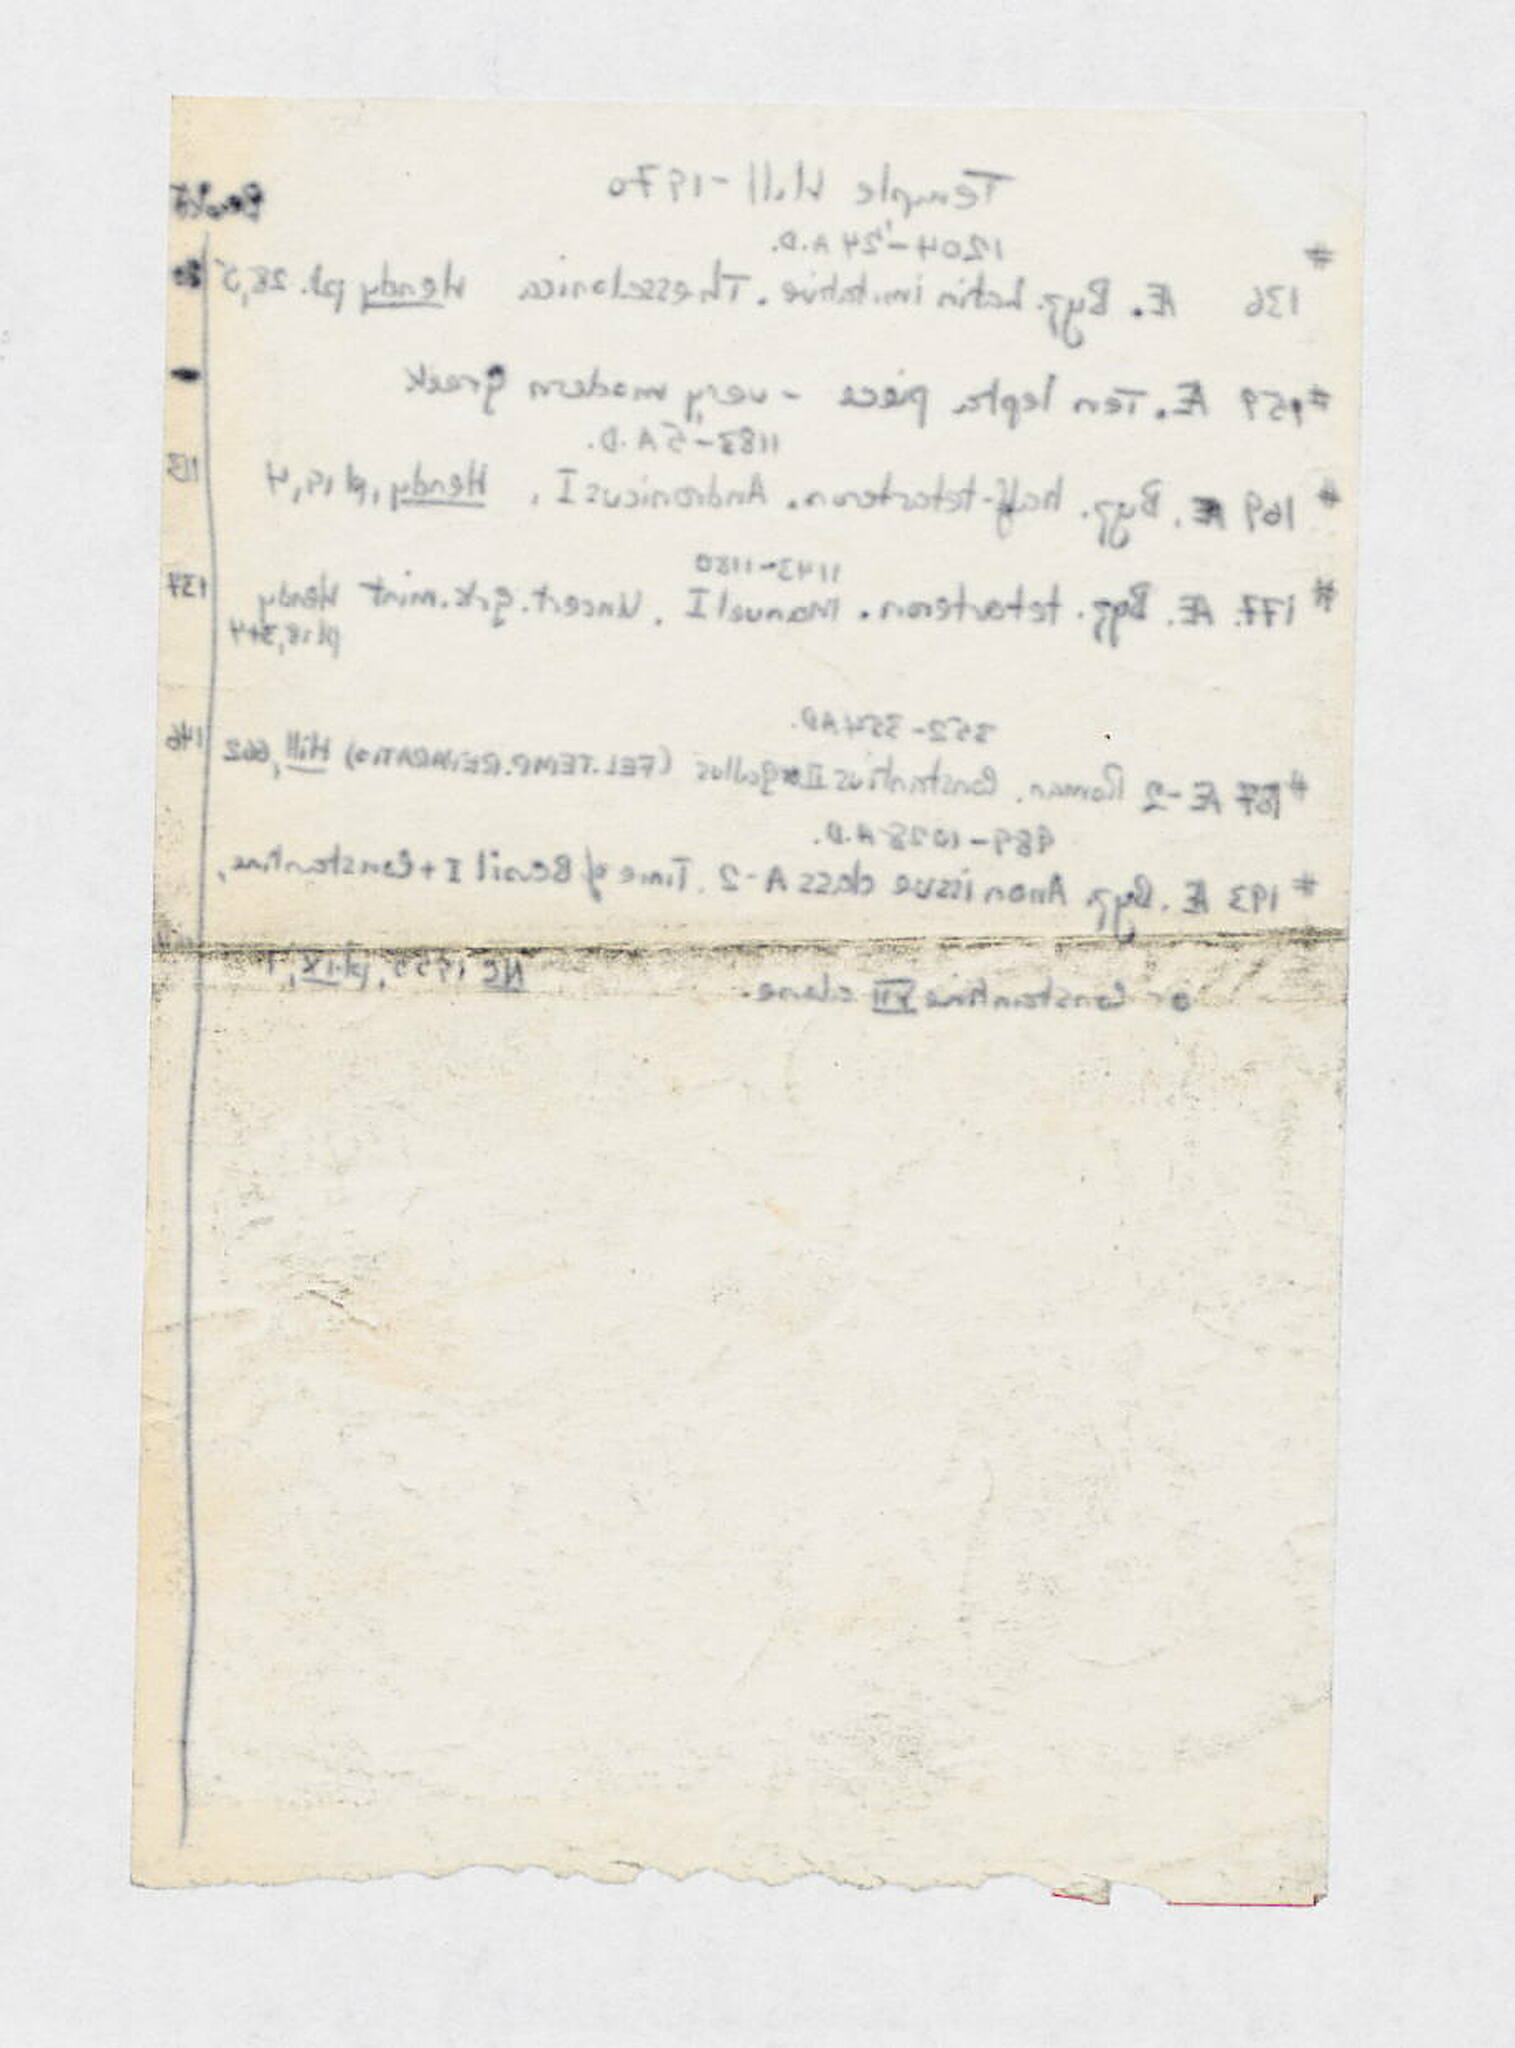 Temple Hill - 1970
Basket
1204-'24 A.D.
# 136 Æ. Byz. Latin imitative. Thessalonica Hendy pl. 28,5
# 159 Æ. Ten lepta piece - very modern Greek -
1183-5 A.D.
# 169 Æ. Byz. half-tetarteron. Andronicus I, Hendy, pl 19,4 113
1143-1180
# 177. Æ. Byz. tetarteron. Manuel I. Uncert. Grk. mint Hendy 137
pl 18, 3+4
352-354 A.D.
# 187 Æ-2 Roman. Constantius II or Gallus (FEL.TEMP.REPARATIO) Hill, 662 146
989-1028 A.D.
# 193 Æ. Byz. Anon issue class A-2. Time of Basil II + Constantine,
or Constantine VIII alone. NC 1955, pl. IX, 1